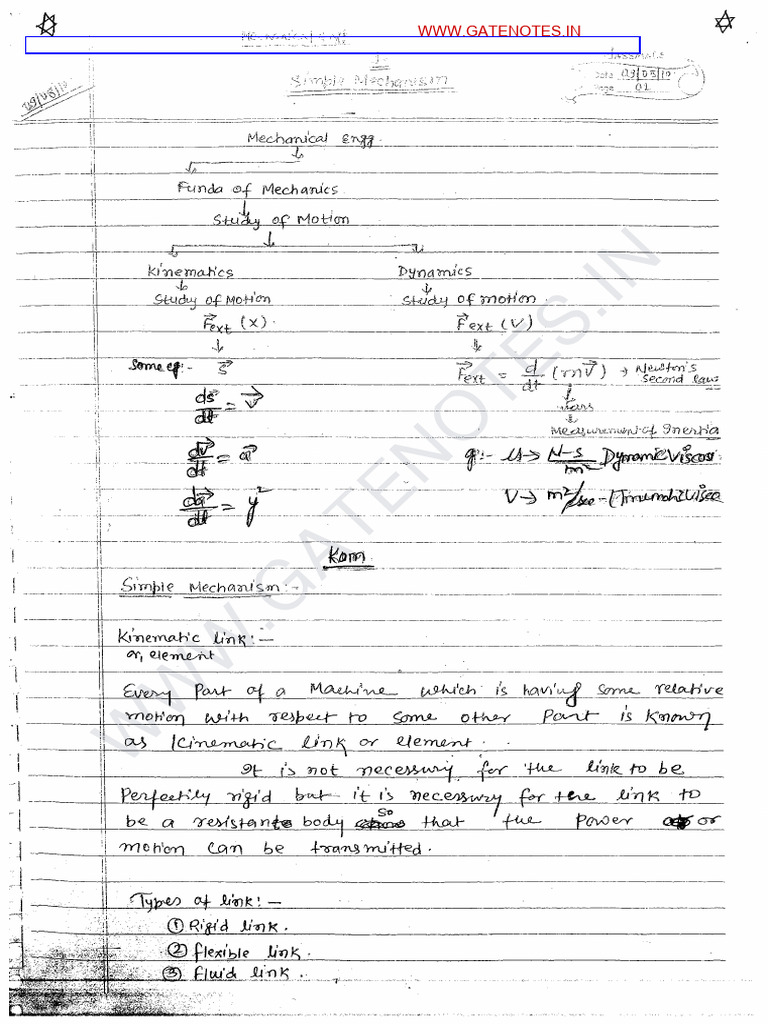 WWW.GATENOTES.IN
1
Simple Mechanism
29/08/10
Date 29/08/10
Page 01
Mechanical Engg.
Funda of Mechanics
Study of Motion
Kinematics Dynamics
Study of Motion Study of motion
F⃗ext (x) F⃗ext (√)
Some eg:- S⃗ F⃗ext = d/dt (mv⃗) → Newton's Second law
ds⃗/dt = v⃗
Measurement of Inertia
dv⃗/dt = a⃗ eg:- μ → N-s/m² Dynamic Viscosi
da⃗/dt = y² ν → m²/sec
Kom
Simple Mechanism:-
Kinematic link:-
or, element
Every Part of a Machine which is having some relative
motion with respect to some other Part is known
as Kinematic link or element.
It is not necessury for the link to be
Perfectily rigid but it is necessury for the link to
be a resistante body so that the Power or
motion can be transmitted.
Types of link:-
① Rigid link.
② flexible link.
③ Fluid link.
WWW.GATENOTES.IN